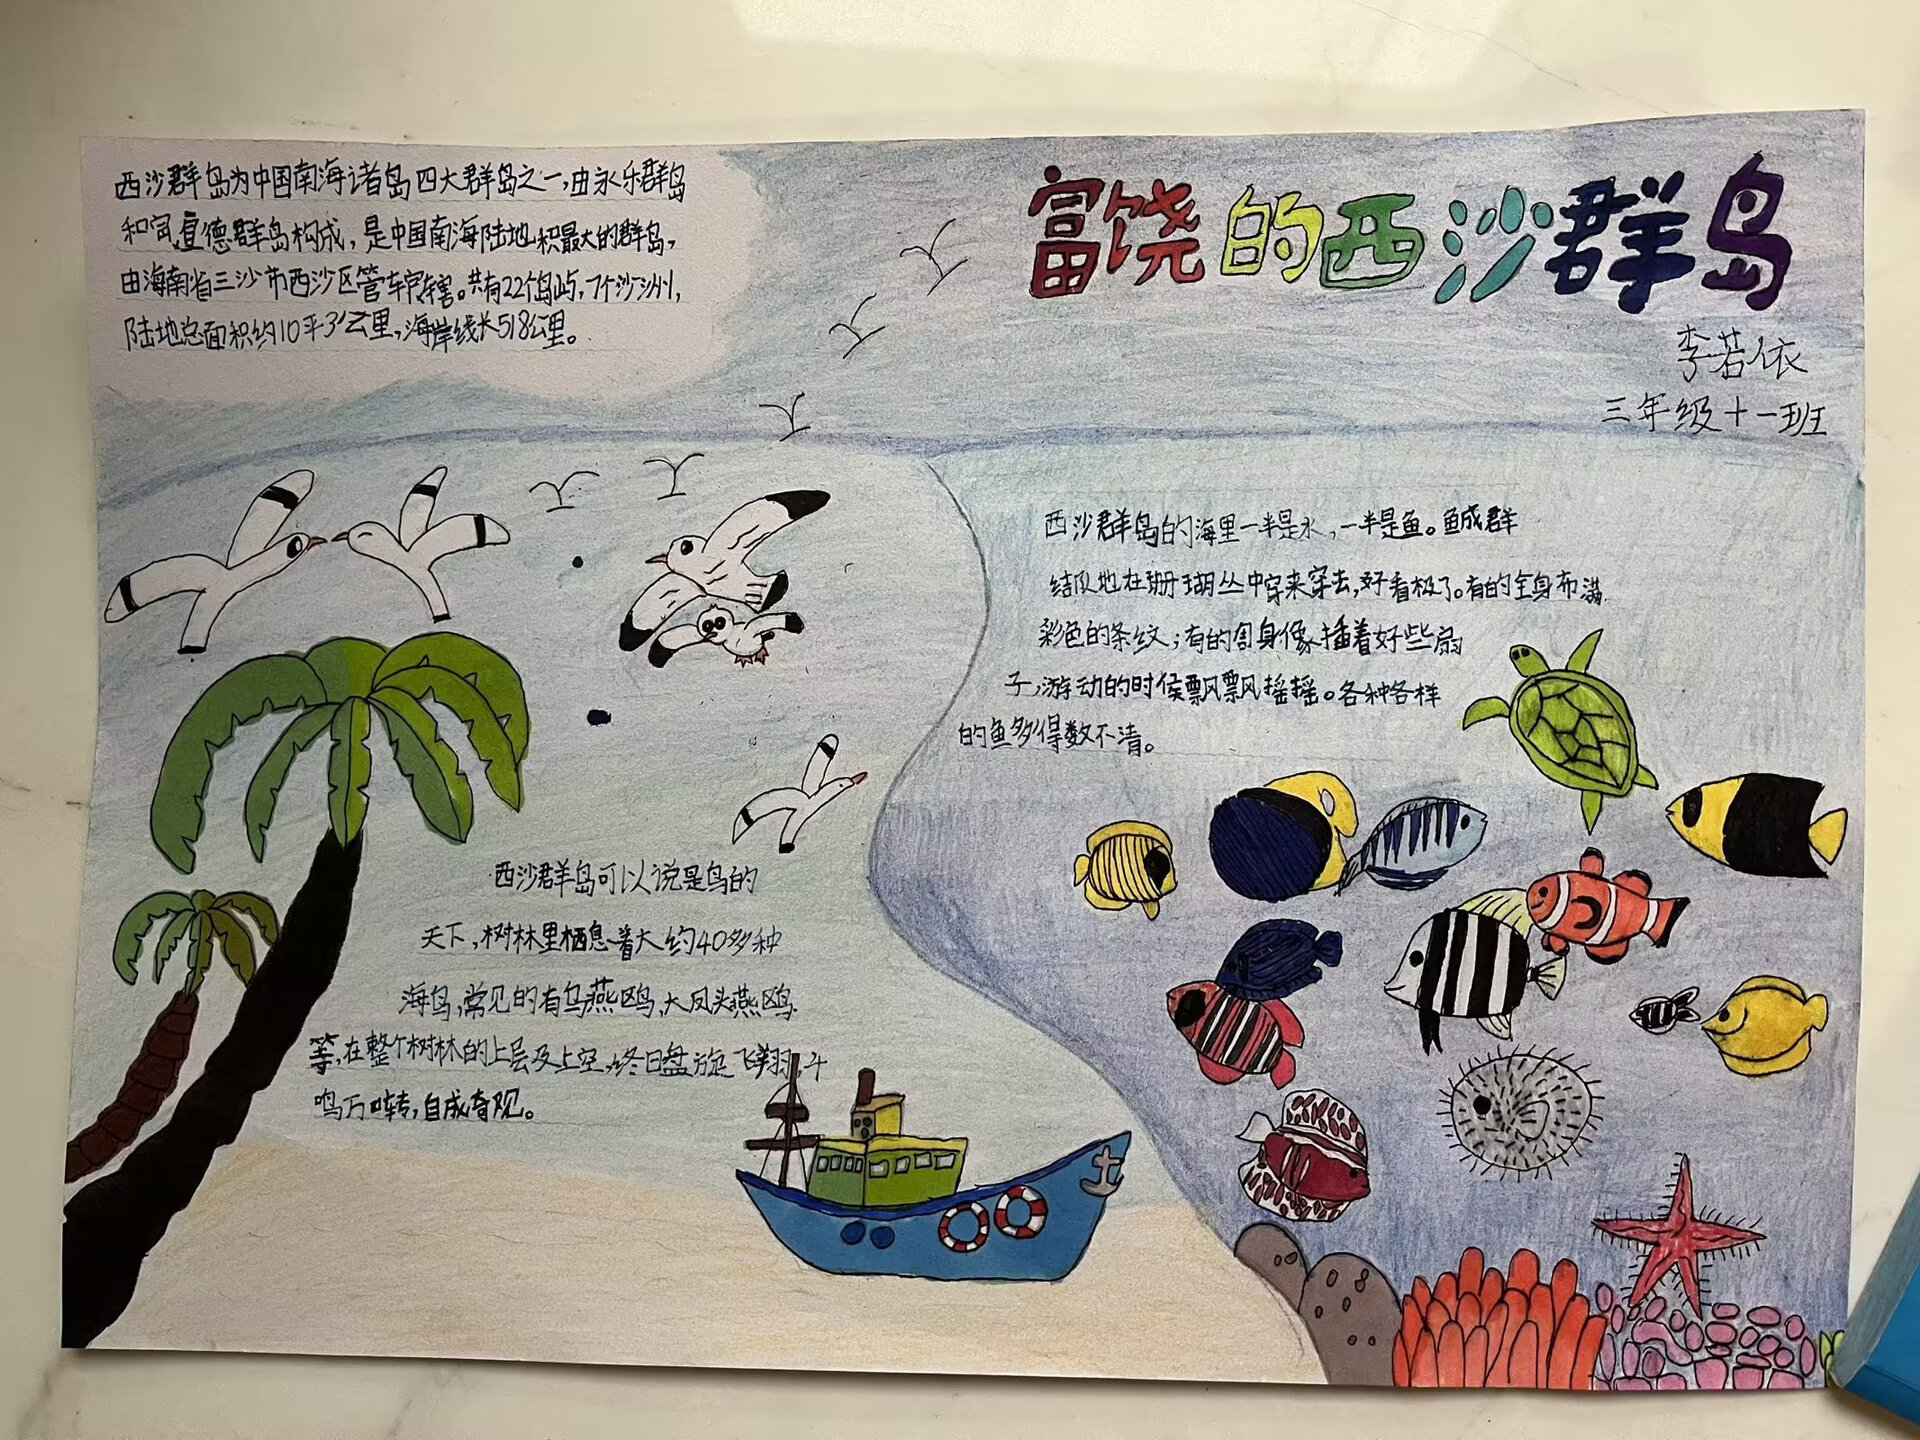 富饶的西沙群岛
李若依
三年级十一班
西沙群岛为中国南海诸岛四大群岛之一，由永乐群岛
和宣德群岛构成，是中国南海陆地积最大的群岛，
由海南省三沙市西沙区管辖。共有22个岛屿，7个沙洲，
陆地总面积约10平方公里，海岸线长518公里。
西沙群岛的海里一半是水，一半是鱼。鱼成群
结队地在珊瑚丛中穿来穿去，好看极了。有的全身布满
彩色的条纹；有的周身像插着好些扇
子，游动的时侯飘飘摇摇。各种各样
的鱼多得数不清。
西沙群岛可以说是鸟的
天下，树林里栖息着大约40多种
海鸟，常见的有乌燕鸥，大凤头燕鸥
等，在整个树林的上层及上空，终日盘旋飞翔，千
鸣万啭，自成奇观。